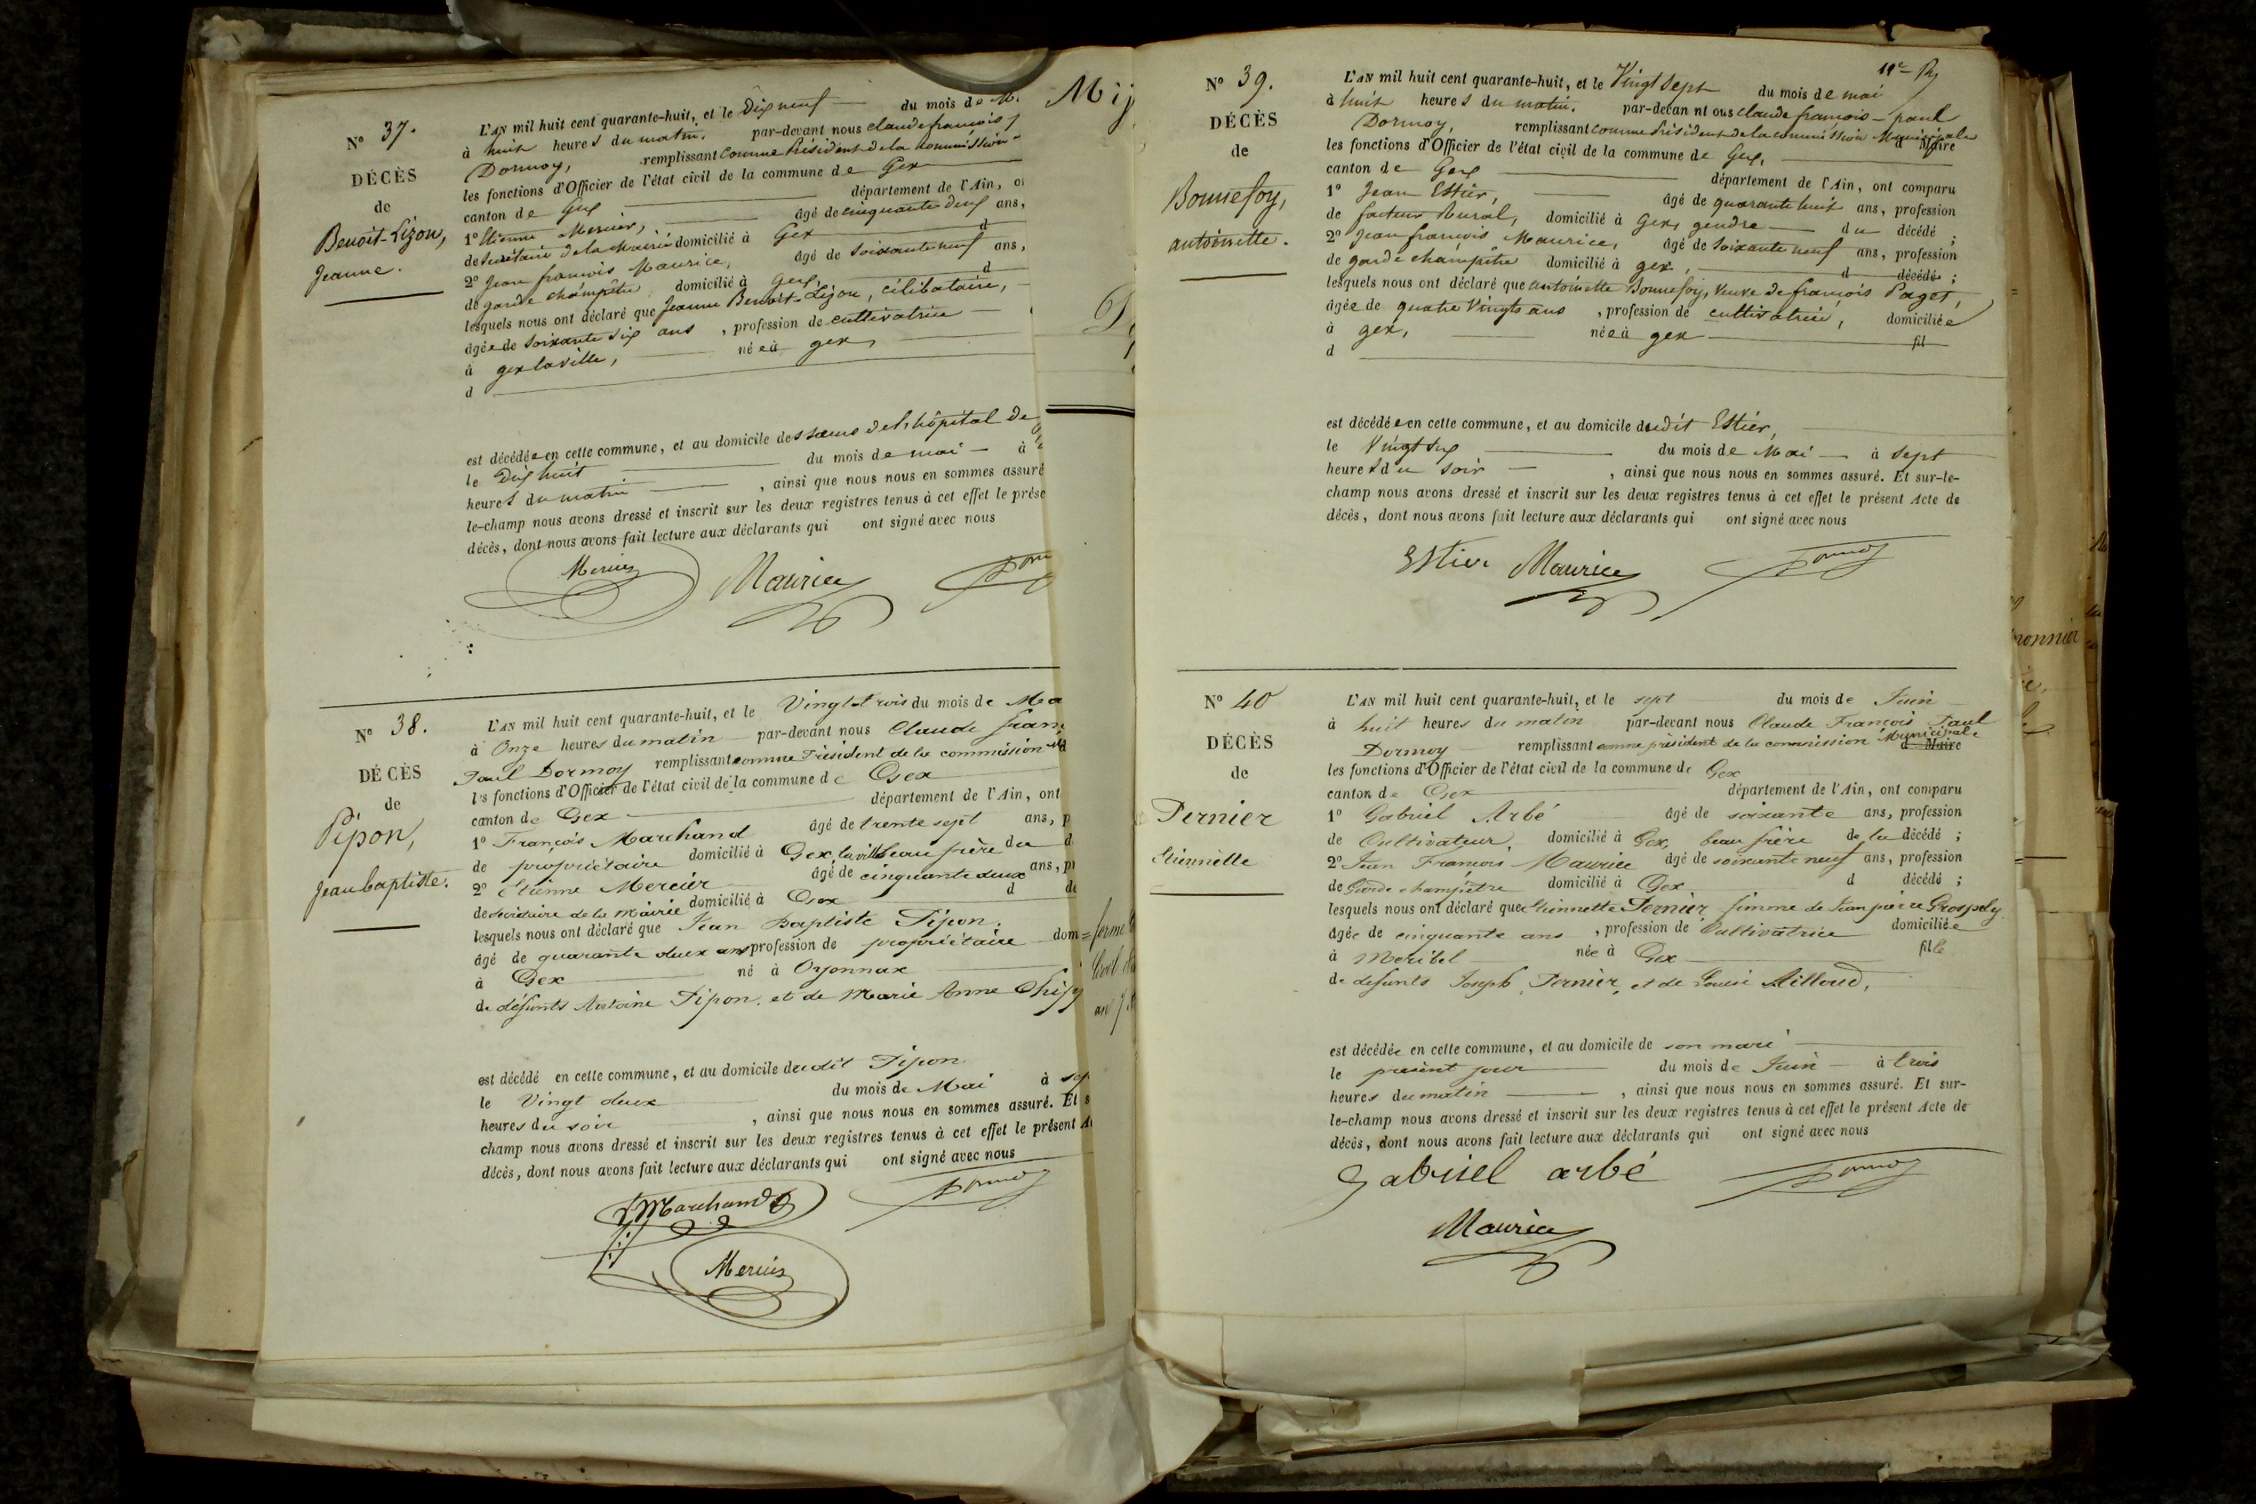 N° 37.
DÉCÈS
de
Benoit-Lizon,
Jeanne.
L'AN mil huit cent quarante-huit, et le Dix neuf du mois de M.
à huit heures du matin. par-devant nous claude françois
Dormoy, remplissant comme Président de la commission
les fonctions d'Officier de l'état civil de la commune de Gex
canton de Gex département de l'Ain,
1° Etienne Mercier, âgé de cinquante deux ans,
de Secrétaire de la Mairie domicilié à Gex d
2° Jean françois Maurice, âgé de soixante neuf ans,
de garde champêtre domicilié à Gex, d
lesquels nous ont déclaré que Jeanne Benoit-Lizon, célibataire,
âgée de soixante six ans , profession de cultivatrice
à gex la ville, née à gex,
d
est décédée en cette commune, et au domicile des soeurs de l'hôpital de
le Dix huit du mois de mai à
heures du matin , ainsi que nous nous en sommes assuré
le-champ nous avons dressé et inscrit sur les deux registres tenus à cet effet le prése
décès, dont nous avons fait lecture aux déclarants qui ont signé avec nous
Mercier Maurice
N° 38.
DÉCÈS
de
Pipon,
Jean baptiste.
L'AN mil huit cent quarante-huit, et le Vingt trois du mois de Ma
à Onze heures du matin par-devant nous Claude fran
Paul Dormoy remplissant comme Président de la commission
les fonctions d'Officier de l'état civil de la commune de Gex
canton de Gex département de l'Ain, ont
1° François Marchand âgé de trente sept ans, p
de propriétaire domicilié à Gex la ville beau frère du d
2° Etienne Mercier âgé de cinquante deux ans, pr
de secrétaire de la Mairie domicilié à Gex d dé
lesquels nous ont déclaré que Jean Baptiste Pipon.
âgé de quarante deux ans profession de propriétaire dom
à Gex né à Oyonnax
de défunts Antoine Pipon. et de Marie Anne
est décédé en cette commune, et au domicile dudit Pipon
le Vingt deux du mois de Mai à sep
heures du soir , ainsi que nous nous en sommes assuré. Et s
champ nous avons dressé et inscrit sur les deux registres tenus à cet effet le présent A
décès, dont nous avons fait lecture aux déclarants qui ont signé avec nous
Marchand Dormoy
Mercier
N° 39.
DÉCÈS
de
Bonnefoy,
antoinette.
L'AN mil huit cent quarante-huit, et le Vingt sept du mois de mai
à huit heures du matin. par-devan nt ous claude françois-paul
Dormoy, remplissant comme Président de la commission Municipale d Maire
les fonctions d'Officier de l'état civil de la commune de Gex,
canton de Gex département de l'Ain, ont comparu
1° Jean Estier, âgé de quarante huit ans, profession
de facteur Rural, domicilié à Gex, gendre du décédé ;
2° Jean françois Maurice, âgé de soixante neuf ans, profession
de garde champêtre domicilié à gex, d décédé ;
lesquels nous ont déclaré que antoinette Bonnefoy, Veuve de françois Paget,
âgée de quatre Vingts ans , profession de cultivatrice, domiciliée
à gex, née à gex fil
d
est décédée en cette commune, et au domicile dudit Estier,
le Vingt six du mois de Mai à sept
heures du soir , ainsi que nous nous en sommes assuré. Et sur-le-
champ nous avons dressé et inscrit sur les deux registres tenus à cet effet le présent Acte de
décès, dont nous avons fait lecture aux déclarants qui ont signé avec nous
Estier Maurice Dormoy
N° 40
DÉCÈS
de
Pernier
Etiennette
L'AN mil huit cent quarante-huit, et le sept du mois de Juin
à huit heures du matin par-devant nous Claude François Paul
Dormoy remplissant comme président de la commission Municipale d Maire
les fonctions d'Officier de l'état civil de la commune de Gex
canton de Gex département de l'Ain, ont comparu
1° Gabriel Arbé âgé de soixante ans, profession
de Cultivateur, domicilié à Gex, beau frère de la décédé ;
2° Jean François Maurice âgé de soixante neuf ans, profession
de Garde champêtre domicilié à Gex d décédé ;
lesquels nous ont déclaré que Etiennette Pernier femme de Jean pierre
âgée de cinquante ans , profession de Cultivatrice domiciliée
à Meribel née à Gex fille
de defunts Joseph Pernier, et de Louise
est décédée en cette commune, et au domicile de son mari
le présent jour du mois de Juin à trois
heures du matin , ainsi que nous nous en sommes assuré. Et sur-
le-champ nous avons dressé et inscrit sur les deux registres tenus à cet effet le présent Acte de
décès, dont nous avons fait lecture aux déclarants qui ont signé avec nous
Gabriel arbé Dormoy
Maurice